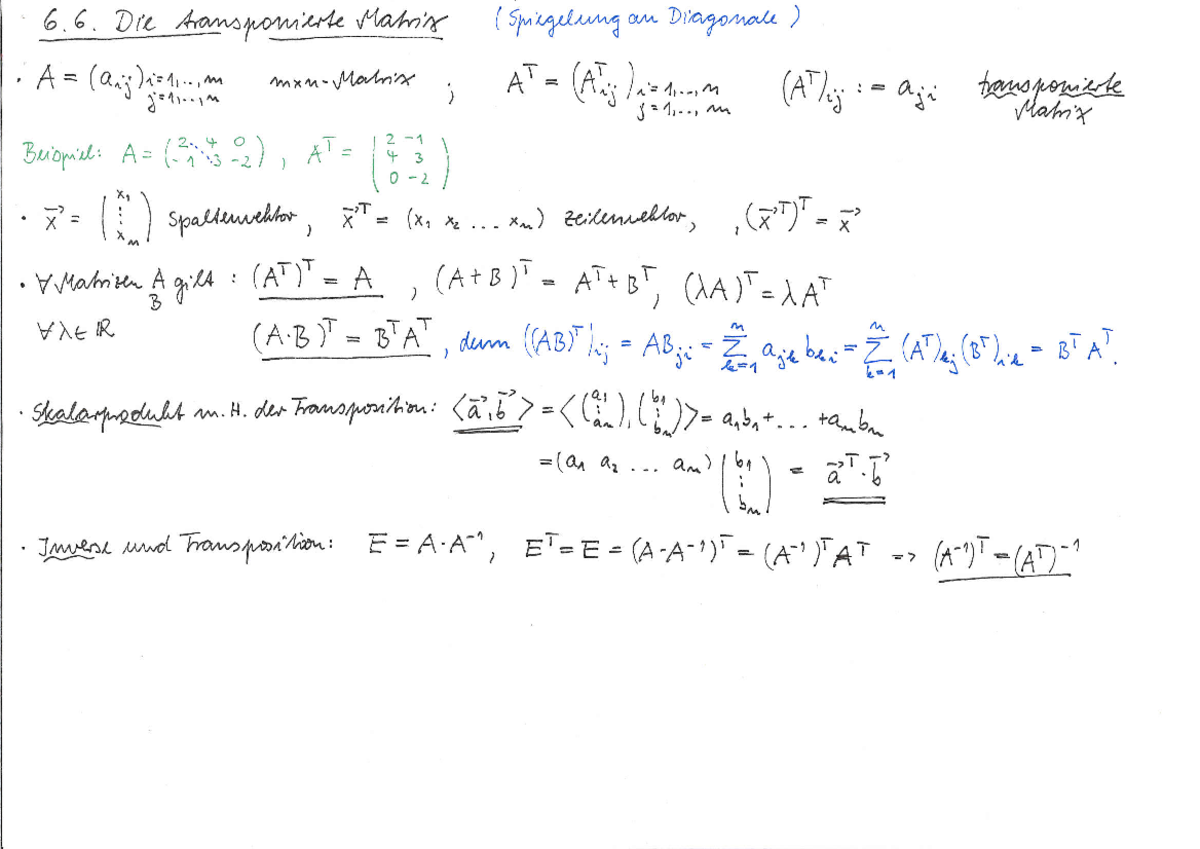 6.6. Die transponierte Matrix (Spiegelung an Diagonale)
· A = (a_ij) i=1,..,m j=1,..,n m×n-Matrix ; A^T = (A^T_ij) i=1,..,n j=1,..,m (A^T)_ij := a_ji transponierte Matrix
Beispiel: A = ( 2 4 0 ; -1 3 -2 ) , A^T = ( 2 -1 ; 4 3 ; 0 -2 )
· x⃗ = ( x_1 ⋮ x_n ) Spaltenvektor , x⃗^T = (x_1 x_2 ... x_n) Zeilenvektor, , (x⃗^T)^T = x⃗
· ∀ Matrizen A B gilt : (A^T)^T = A , (A+B)^T = A^T + B^T , (λA)^T = λA^T
∀ λ ∈ ℝ (A·B)^T = B^T A^T , denn ((AB)^T)_ij = AB_ji = ∑_{k=1}^n a_jk b_ki = ∑_{k=1}^n (A^T)_kj (B^T)_ik = B^T A^T.
· Skalarprodukt m. H. der Transposition: <a⃗, b⃗> = <( a_1 ⋮ a_n ), ( b_1 ⋮ b_n )> = a_1b_1 + ... + a_nb_n
= (a_1 a_2 ... a_n) ( b_1 ⋮ b_n ) = a⃗^T · b⃗
· Inverse und Transposition: E = A·A^-1 , E^T = E = (A·A^-1)^T = (A^-1)^T A^T => (A^-1)^T = (A^T)^-1